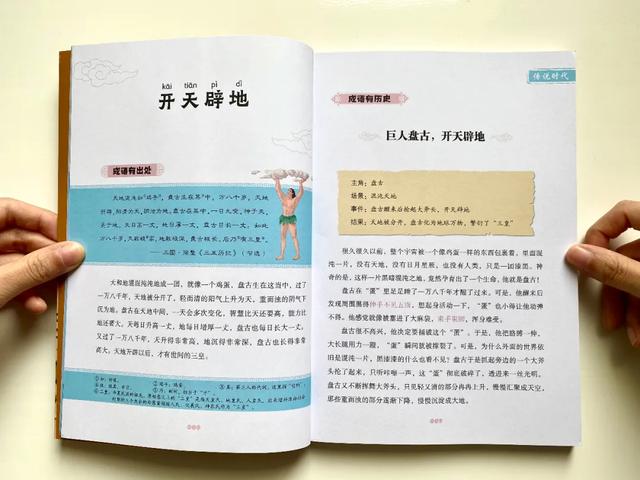 kāi tiān pì dì
开天辟地
成语有出处
天地混沌如鸡子，盘古生在其中，万八千岁，天地
开辟，阳清为天，阴浊为地，盘古在其中，一日九变，神于天，
圣于地，天日高一丈，地日厚一丈，盘古日长一丈，如此
万八千岁，天数极高，地数极深，盘古极长，后乃有三皇。
——三国·徐整《三五历记》（节选）
大和地混混沌沌地成一团，就像一个鸡蛋，盘古生在这当中，过了
一万八千年，天地被分开了，轻而清的阳气上升为天，重而浊的阴气下
沉为地。盘古在天地中间，一天会多次变化，智慧比天还要高，能力比
地还要大。天每日升高一丈，地每日增厚一丈，盘古也每日长大一丈。
又过了一万八千年，天升得非常高，地沉得非常深，盘古也长得非常
高大。天地开辟以后，才有世间的三皇。
传说时代
成语有历史
巨人盘古，开天辟地
主角：盘古
场景：混沌天地
事件：盘古醒来后抡起大斧头，开天辟地
结果：天地分开，盘古化为地球万物，繁衍了“三皇”
很久很久以前，整个宇宙被一个像鸡蛋一样的东西包裹着，里面混
沌一片，没有天地，没有日月星辰，也没有人类，只是一团漆黑。神
奇的是，这样一片黑暗混沌之地，竟然孕育出了一个生命，他就是盘古！
盘古在“蛋”里足足睡了一万八千年才醒了过来。可是，他醒来后
发现周围黑得伸手不见五指，想起身活动一下，“蛋”也小得让他动弹
不得。他感觉就像被塞进了大麻袋，束手束脚，浑身难受。
盘古很不高兴，他决定要捅破这个“蛋”。于是，他把胳膊一伸，
大长腿用力一蹬，“蛋”瞬间就被撑裂了。可是，为什么外面的世界依
旧是混沌一片，黑漆漆的什么也看不见？盘古于是抓起旁边的一个大斧
头抡了起来，只听咔嚓一声，这“蛋”彻底破碎了，透进来一丝光明。
盘古又不断挥舞大斧头，只见轻又清的部分冉冉上升，慢慢汇聚成天空，
那些重而浊的部分逐渐下降，慢慢沉淀成大地。